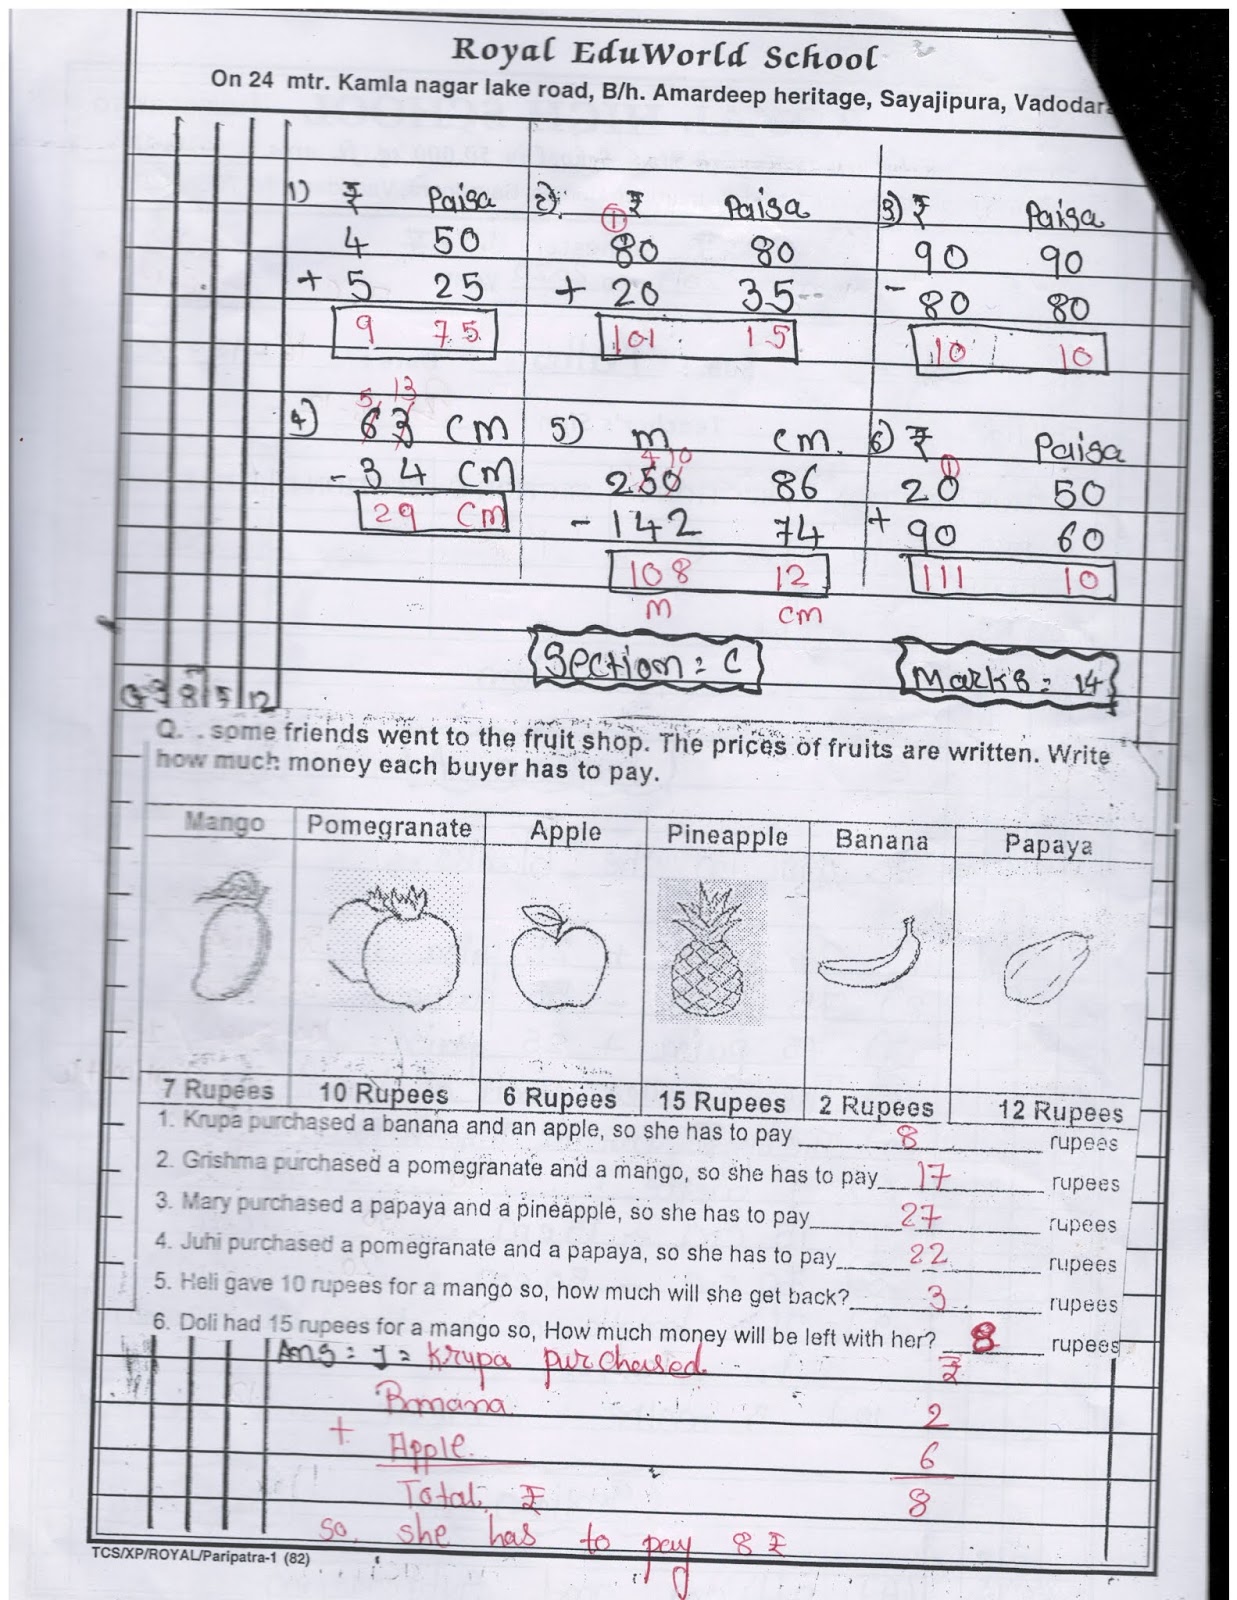 Royal EduWorld School
On 24 mtr. Kamla nagar lake road, B/h. Amardeep heritage, Sayajipura, Vadodar
1) ₹ Paisa 2) ₹ Paisa 3) ₹ Paisa
1
4 50 80 80 90 90
+ 5 25 + 20 35 - 80 80
9 75 101 15 10 10
5 13
4) 63 cm 5) m cm. 6) ₹ Paisa
4 10 1
- 34 cm 250 86 20 50
29 cm - 142 74 + 90 60
108 12 111 10
m cm
Section = C Marks = 14
Q-3 8 5 12
Q. . some friends went to the fruit shop. The prices of fruits are written. Write
how much money each buyer has to pay.
Mango Pomegranate Apple Pineapple Banana Papaya
7 Rupees 10 Rupees 6 Rupees 15 Rupees 2 Rupees 12 Rupees
1. Krupa purchased a banana and an apple, so she has to pay 8 rupees
2. Grishma purchased a pomegranate and a mango, so she has to pay 17 rupees
3. Mary purchased a papaya and a pineapple, so she has to pay 27 rupees
4. Juhi purchased a pomegranate and a papaya, so she has to pay 22 rupees
5. Heli gave 10 rupees for a mango so, how much will she get back? 3 rupees
6. Doli had 15 rupees for a mango so, How much money will be left with her? 8 rupees
Ans = 1 = Krupa purchased ₹
Banana 2
+ Apple. 6
Total ₹ 8
so, she has to pay 8 ₹
TCS/XP/ROYAL/Paripatra-1 (82)